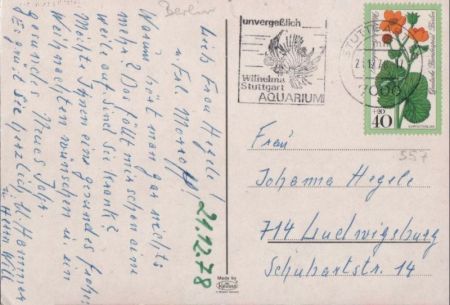 Berlin
Lieb Frau Hegele!
u. Frl.
Warum hört man gar nichts
mehr? Das fällt mir schon eine
Weile auf. Sind Sie krank?
Möchte Ihnen ein gesundes frohes
Weihnachten wünschen u. ein
gesundes Neues Jahr
Es grüßt Sie herzlich
u. Herrn Will
21.12.78
unvergeßlich
Wilhelma
Stuttgart
AQUARIUM
STUTTG
7000
+20
40
Made by
Krüger
Frau
557
Johanna Hegele
714 Ludwigsburg
Schubartstr. 53